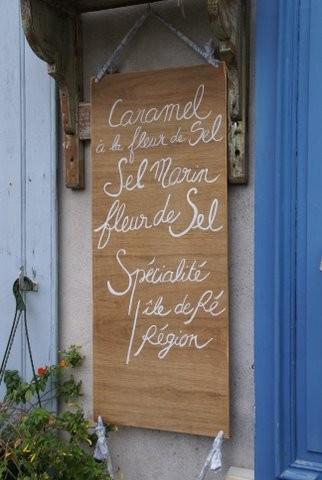 Caramel
à la fleur de Sel
Sel Marin
fleur de Sel
Spécialité
île de Ré
Région